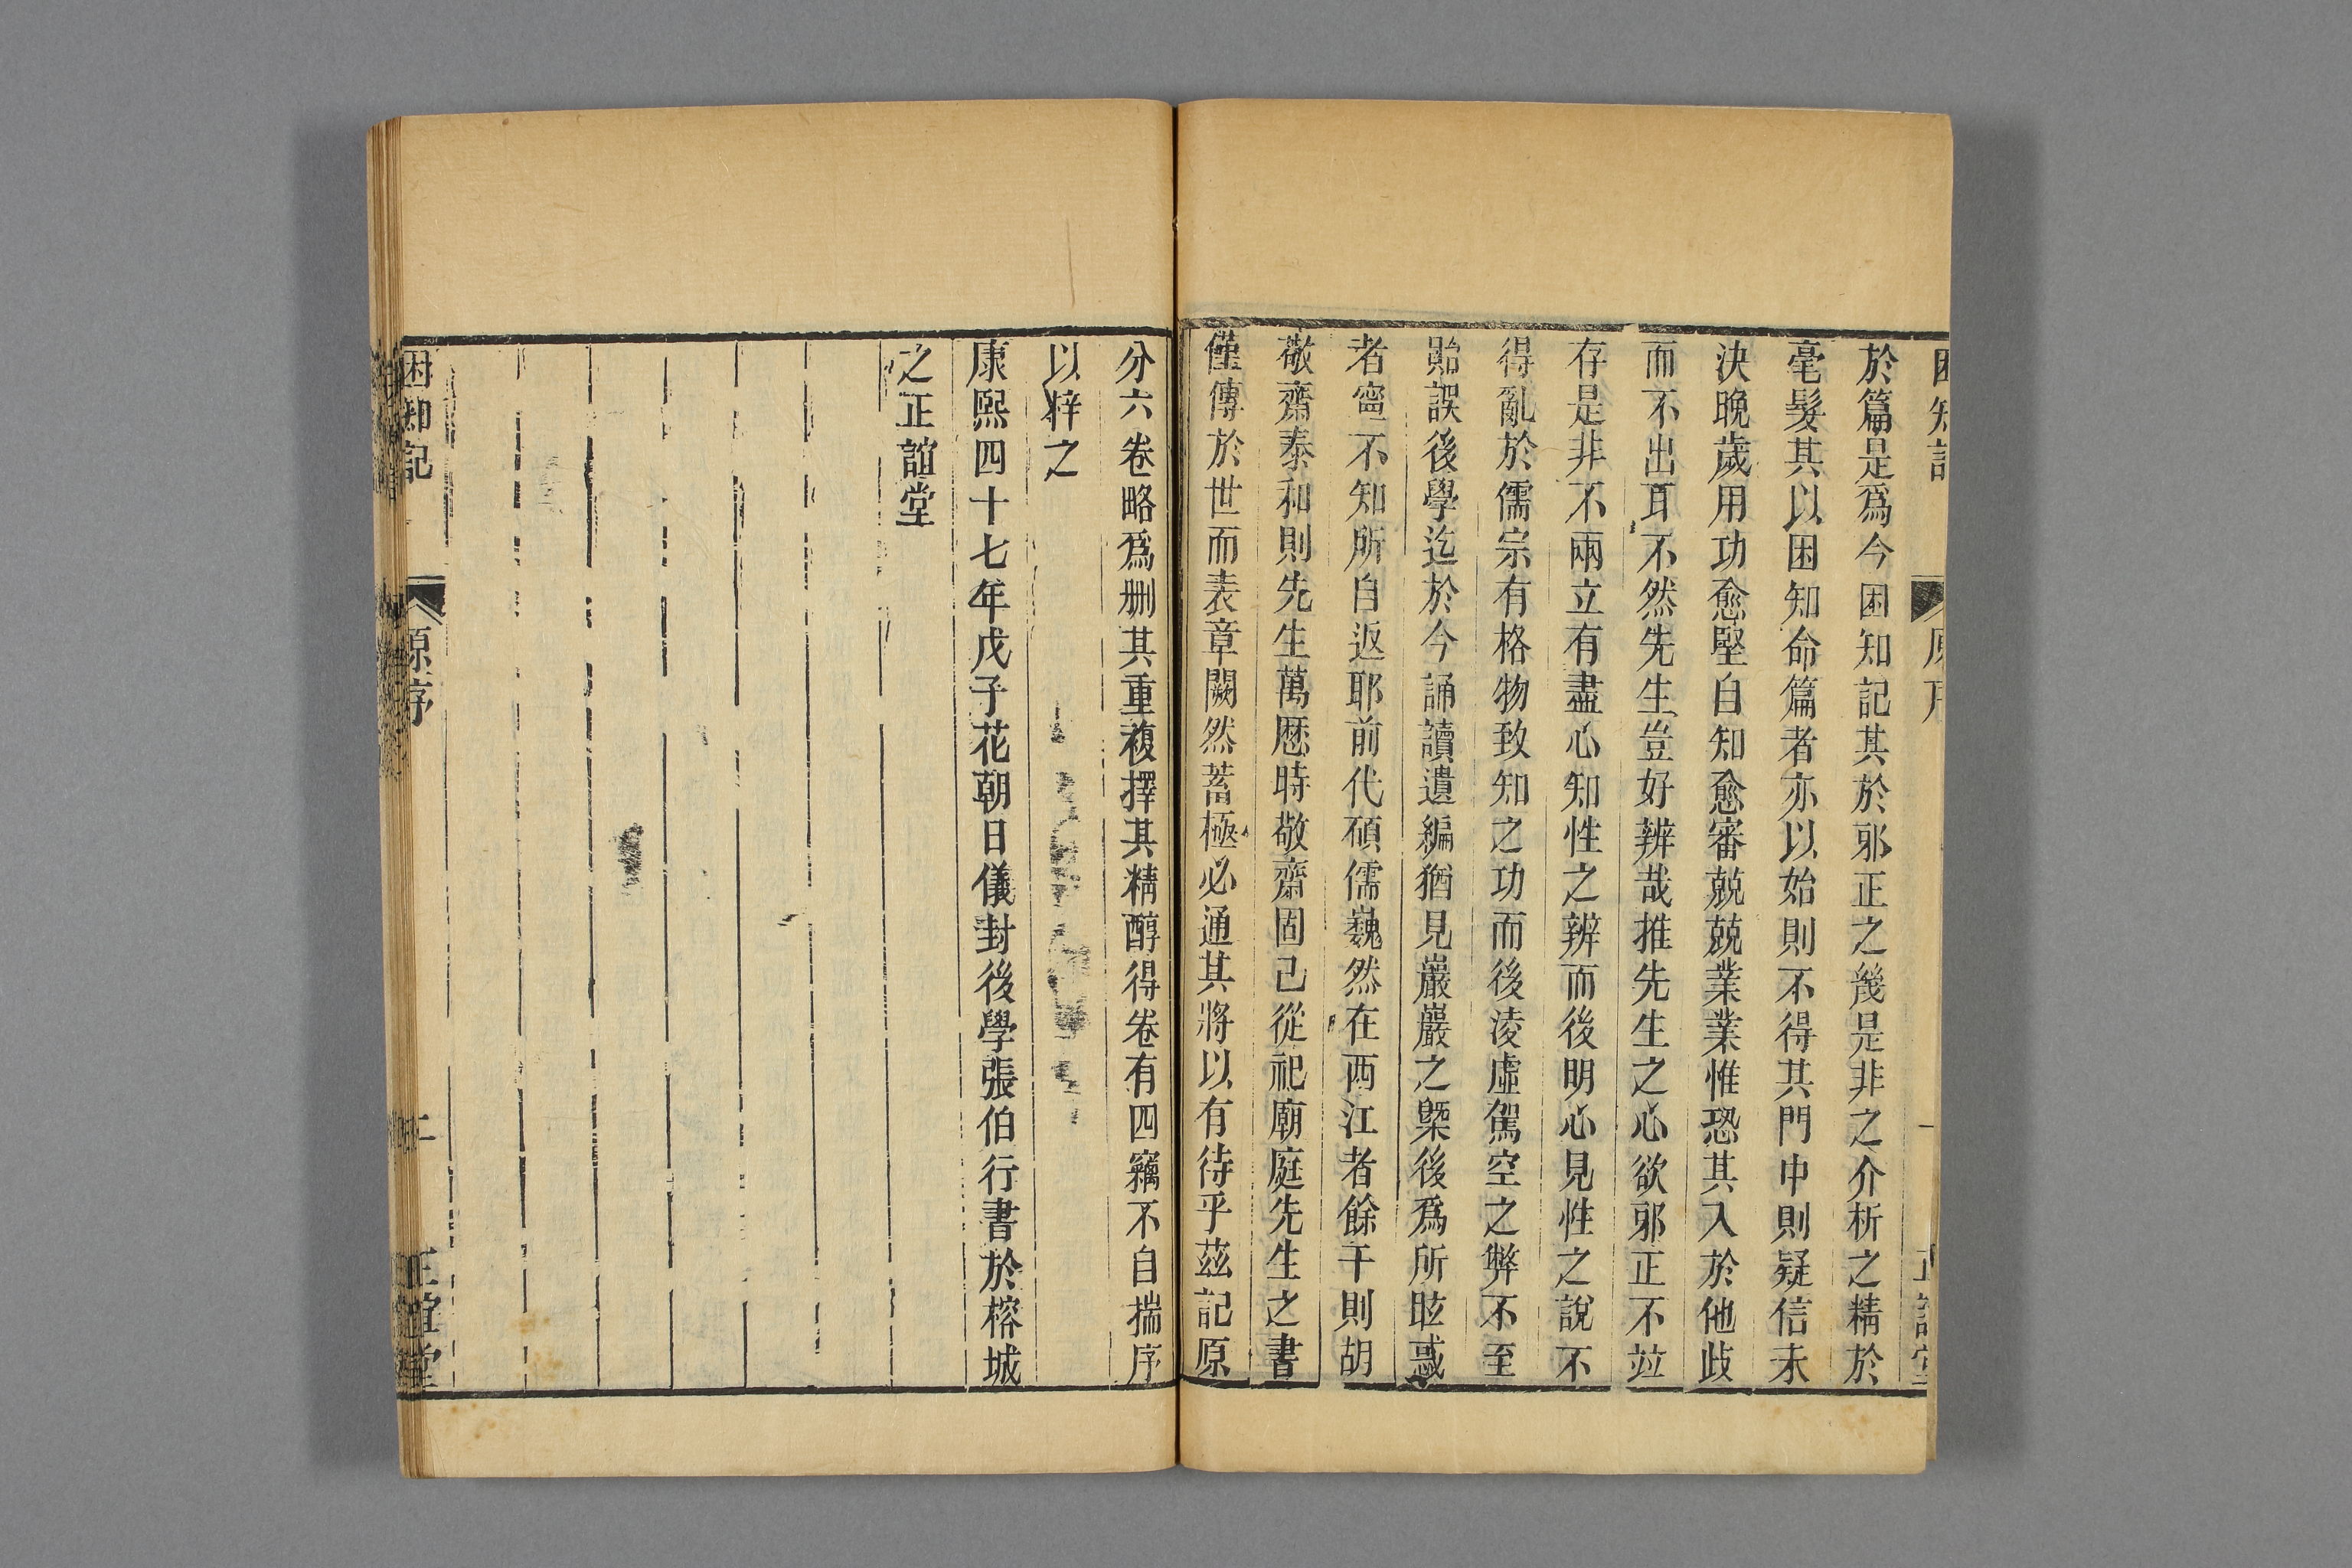 困知記 原序 一 正誼堂
於篇是爲今困知記其於邪正之幾是非之介析之精於
毫髮其以困知命篇者亦以始則不得其門中則疑信未
決晚歲用功愈堅自知愈審兢兢業業惟恐其入於他歧
而不出耳不然先生豈好辨哉推先生之心欲邪正不竝
存是非不兩立有盡心知性之辨而後明心見性之說不
得亂於儒宗有格物致知之功而後淩虛駕空之弊不至
貽誤後學迄於今誦讀遺編猶見巖巖之槩後爲所眩惑
者寧不知所自返耶前代碩儒巍然在西江者餘干則胡
敬齋泰和則先生萬厯時敬齋固已從祀廟庭先生之書
僅傳於世而表章闕然蓄極必通其將以有待乎茲記原
分六卷略爲刪其重複擇其精醇得卷有四竊不自揣序
以梓之
康熙四十七年戊子花朝日儀封後學張伯行書於榕城
之正誼堂
困知記 原序 二 正誼堂